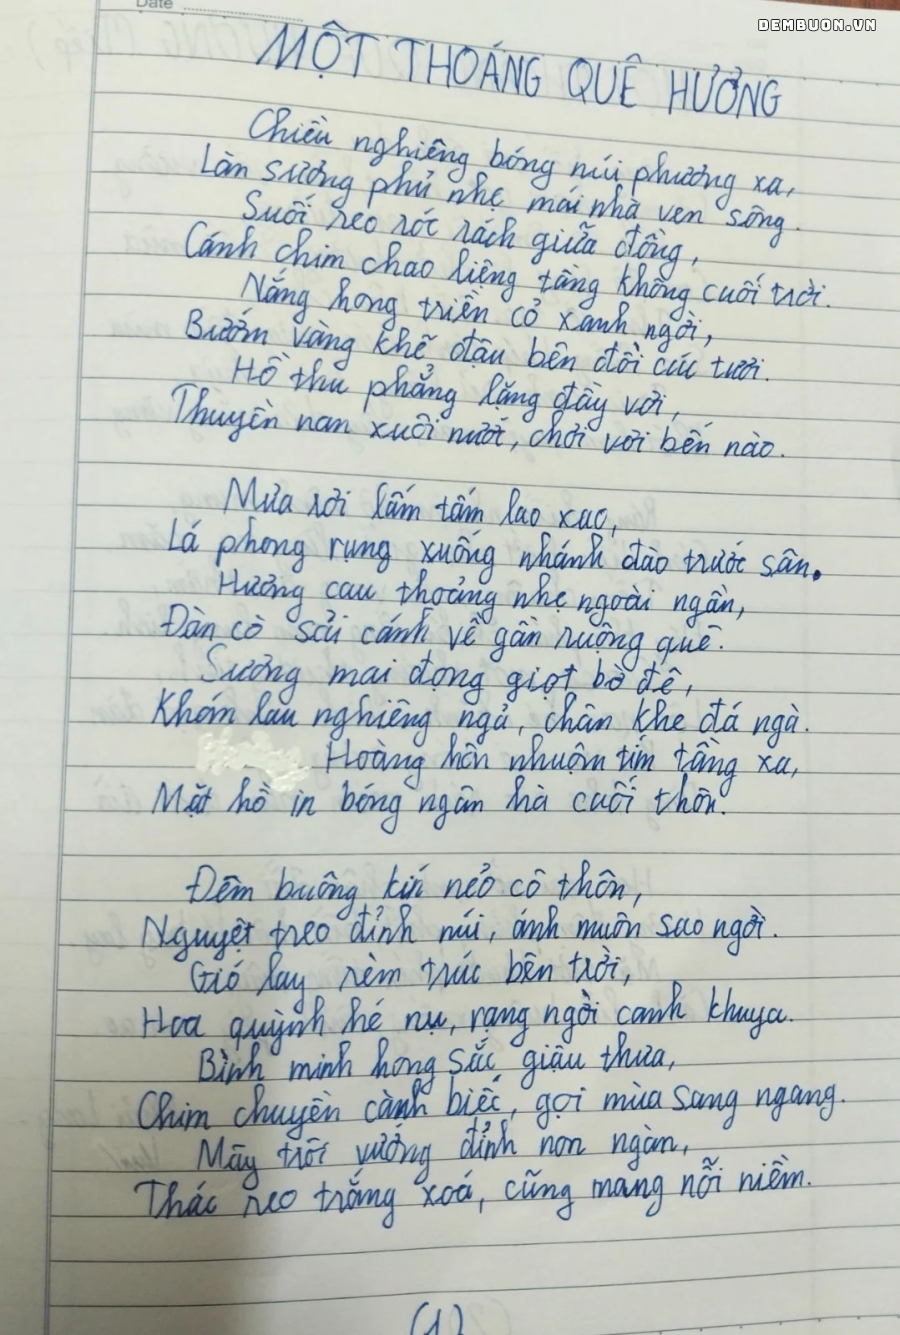 Date
DEMBUON.VN
MỘT THOÁNG QUÊ HƯƠNG
Chiều nghiêng bóng núi phương xa,
Làn sương phủ nhẹ mái nhà ven sông.
Suối reo róc rách giữa đồng,
Cánh chim chao liệng tầng không cuối trời.
Nắng hong triền cỏ xanh ngời,
Bướm vàng khẽ đậu bên đồi cúc tươi.
Hồ thu phẳng lặng đầy vơi,
Thuyền nan xuôi nước, chơi vơi bến nào.
Mưa rơi lấm tấm lao xao,
Lá phong rụng xuống nhánh đào trước sân.
Hương cau thoảng nhẹ ngoài ngần,
Đàn cò sải cánh về gần ruộng quê.
Sương mai đọng giọt bờ đê,
Khóm lau nghiêng ngả, chân khe đá ngà.
Hoàng hôn nhuộm tím tầng xa,
Mặt hồ in bóng ngân hà cuối thôn.
Đêm buông kín nẻo cô thôn,
Nguyệt treo đỉnh núi, ánh muôn sao ngời.
Gió lay rèm trúc bên trời,
Hoa quỳnh hé nụ, rạng ngời canh khuya.
Bình minh hong sắc giậu thưa,
Chim chuyền cành biếc, gọi mùa sang ngang.
Mây trôi vương đỉnh non ngàn,
Thác reo trắng xoá, cũng mang nỗi niềm.
(1)